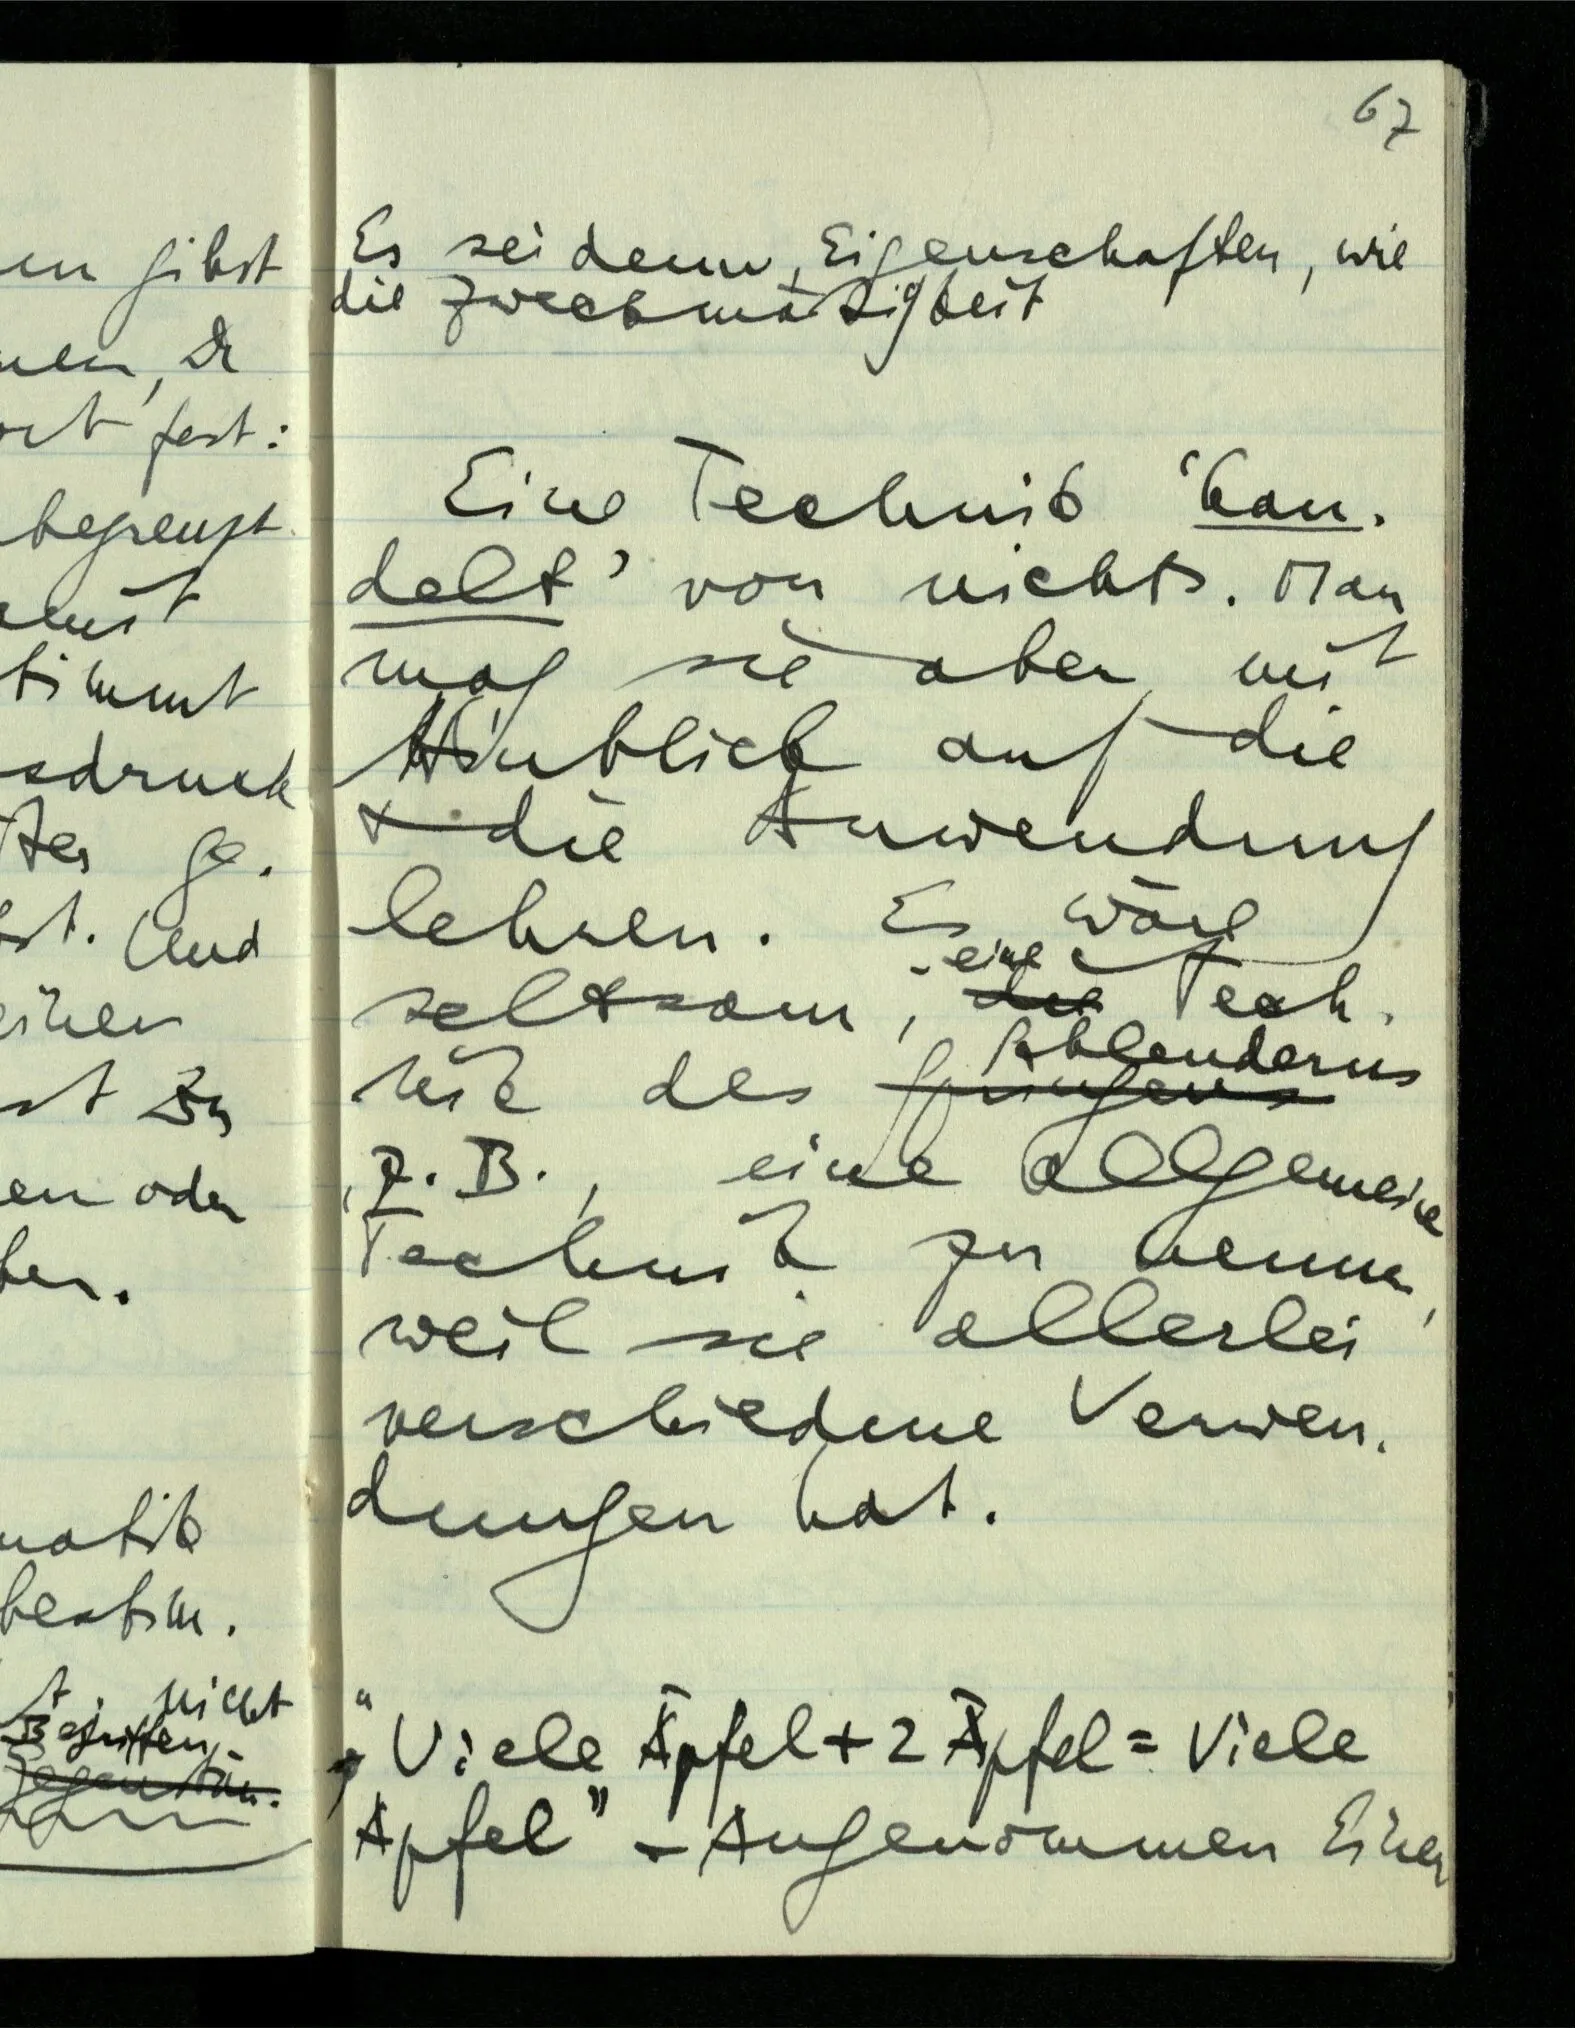 67
en gibst
nen, Dr
ort fest:
begrenzt
stimmt
sdruck
ter ge-
st. Und
einen
st Du
en oder
ber.
matik
bestim-
t; nicht
Begriffen,
Gegenstän-
Es sei denn, Eigenschaften, wie
die Zweckmäßigkeit
Eine Technik ‘han-
delt’ von nichts. Man
mag sie aber mit
Hinblick auf die
die Anwendung
lehren. Es wäre
eine
seltsam, die Tech-
Schlenderns
nik des Springens
, z.B., eine allgemeine
Technik zu nennen,
weil sie allerlei
verschiedne Verwen-
dungen hat.
“Viele Äpfel + 2 Äpfel = Viele
Äpfel” – Angenommen Einer